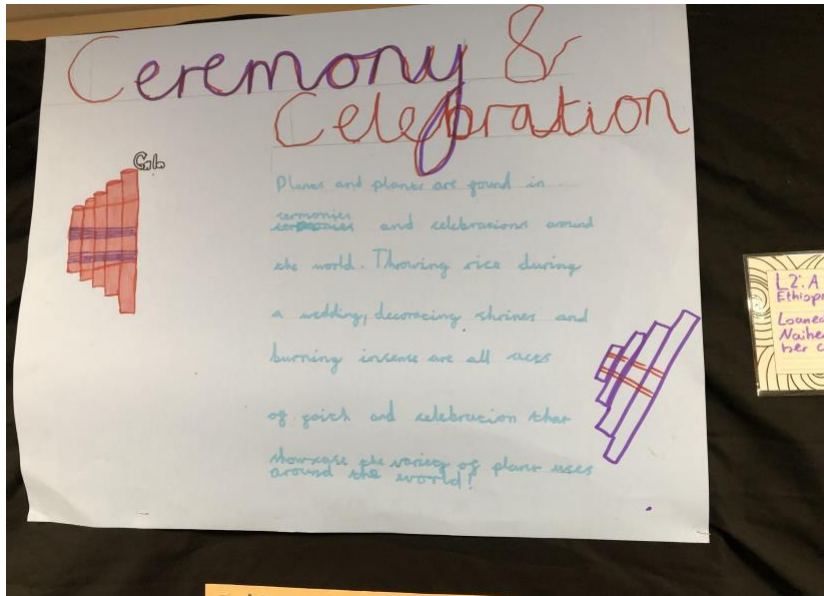 Ceremony &
Celebration
Plants and plants are found in
cermonies
and celebrations around
the world. Throwing rice during
a wedding, decorating shrines and
burning insense are all acts
of faith and celebration that
showcase the variety of plant uses
around the world!
L2: A
Ethiop
Loaned
Naihe
her c